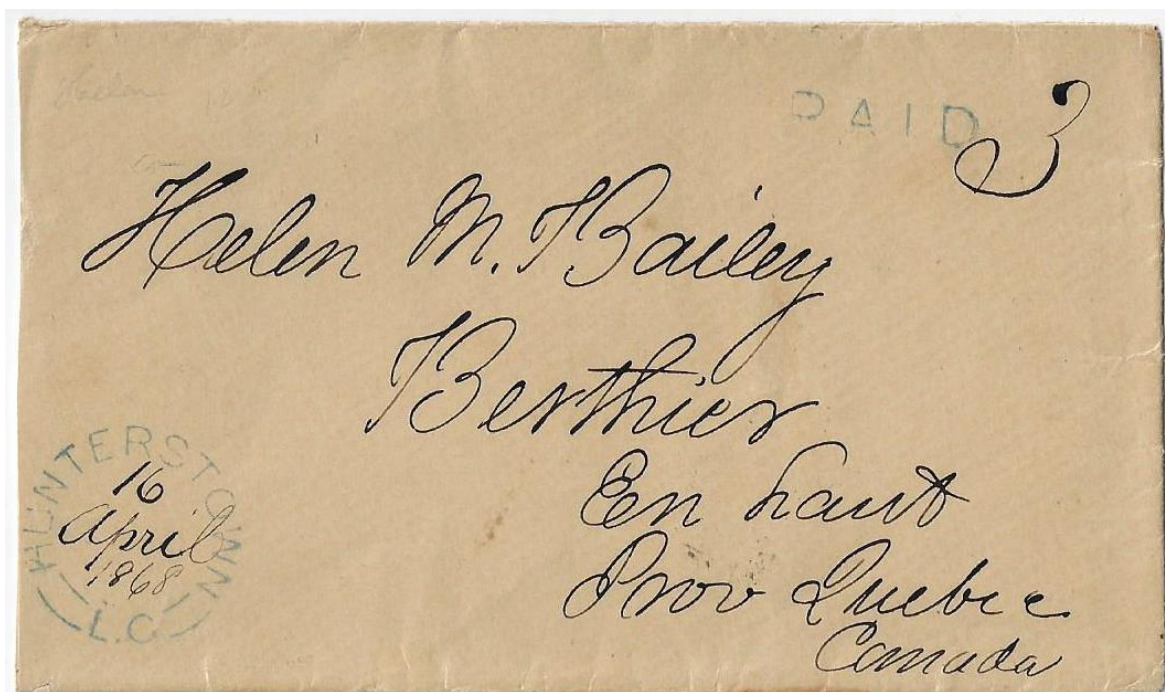 Helen
PAID 3
Helen M. Bailey
Berthier
En haut
Prov Quebec
Canada
HUNTERSTOWN
16
April
1868
L.C.